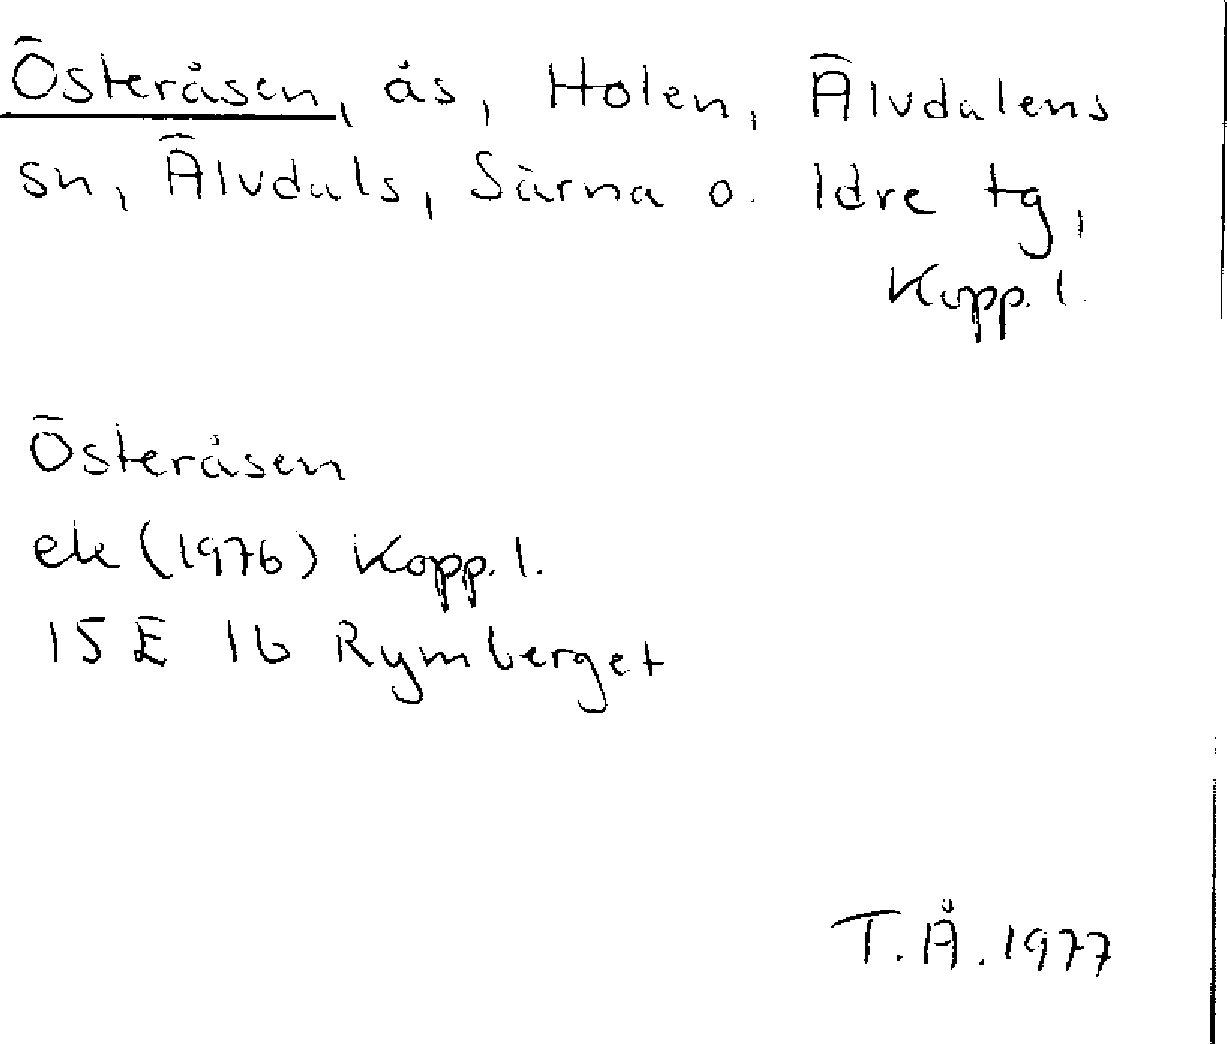 Österåsen, ås, Holen, Älvdalens
sn, Älvdals, Särna o. Idre tg,
Kopp. l.
Österåsen
ek (1976) Kopp. l.
15 E 1b Rymberget
T.Å. 1977